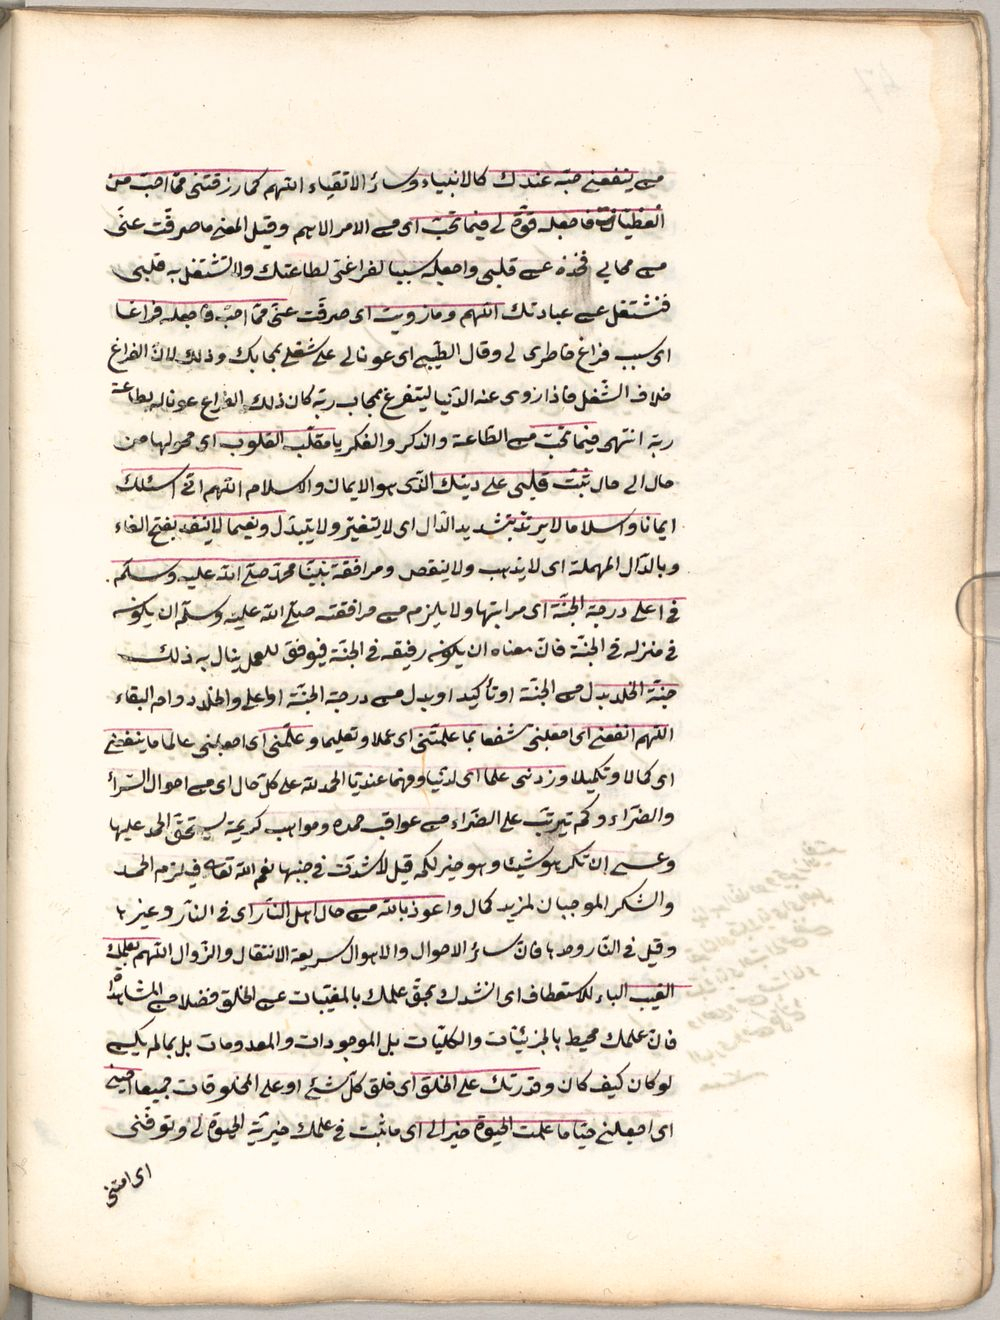 من ينفعنى حبّه عندك كالانبياء وسائر الاتقياء اللهم كما رزقتنى ممّا احبّ من
العطيّات فاجعله قوّة لى فيما تحبّ اى من الامر الاهم وقيل المعنى ما صرفت عنّى
من محابى فنحّه عن قلبى واجعله سببا لفراغتى لطاعتك ولا تشتغل به قلبى
فتشتغل عن عبادتك اللهم وما زويت اى صرفت عنّى ممّا احبّ فاجعله فراغا
اى سبب فراغ خاطرى لى وقال الطّيبى اى عونا لى على شغلى بمحابك وذلك لانّ الفراغ
خلاف الشّغل فاذا زوى عنه الدّنيا ليتفرغ بمحاب ربّه كان ذلك الفراغ عونا له بطاعة
ربّه انتهى فيما تحبّ من الطّاعة والذكر والفكر يا مقلّب القلوب اى محولها من
حال الى حال ثبّت قلبى على دينك الّذى هو الايمان والاسلام اللهم انّى اسئلك
ايمانا وسلاما لا يرتدّ بتشديد الدّال اى لا يتغيّر ولا يتبدّل ونعيما لا ينفد بفتح الفاء
وبالدّال المهملة اى لا يذهب ولا ينقص ومرافقة نبيّنا محمّد صلّى الله عليه وسلّم
فى اعلى درجة الجنّة اى مراتبها ولا يلزم من مرافقته صلّى الله عليه وسلّم ان يكون
فى منزله فى الجنّة فانّ معناه ان يكون رفيقه فى الجنّة فيوفق للعمل ينال به ذلك
جنّة الخلد بدل من الجنّة او تأكيد او بدل من درجة الجنّة او اعلى والخلد دوام البقاء
اللهم انفعنى اى اجعلنى منتفعا بما علمتنى اى عملا وتعليما وعلّمنى اى اجعلنى عالما ما ينفعنى
اى كمالا وتكميلا وزدنى علما اى لدنيّا وفهما عنديّا الحمد لله على كلّ حال اى من احوال السّرّاء
والضرّاء وكم يترتّب على الضرّاء من عواقب حمده ومواهب كريمة يستحقّ الحمد عليها
وعسى ان تكرهوا شيئا وهو خير لكم قيل لا شدّة فى جنبها نعم الله تعالى فيلزم الحمد
والشكر الموجبان لمزيد كمال واعوذ بالله من حال اهل النّار اى فى النار وغيرها
وقيل فى النّار وحدها فانّ سائر الاحوال والاهوال سريعة الانتقال والزّوال اللهم بعلمك
الغيب الباء للاستعطاف اى انشدك بحقّ علمك بالمغيّبات عن الخلق فضلا من المشاهدات
فانّ علمك محيط بالجزئيّات والكلّيّات بل الموجودات والمعدومات بل بما لم يكن
لو كان كيف كان وقدرتك على الخلق اى خلق كلّ شئ او على المخلوقات جميعا احينى
اى اجعلنى حيّا ما علمت الحيوة خيرا لى اى ما ثبت فى علمك خيريّة الحيوة لى وتوفّنى
اى امتنى